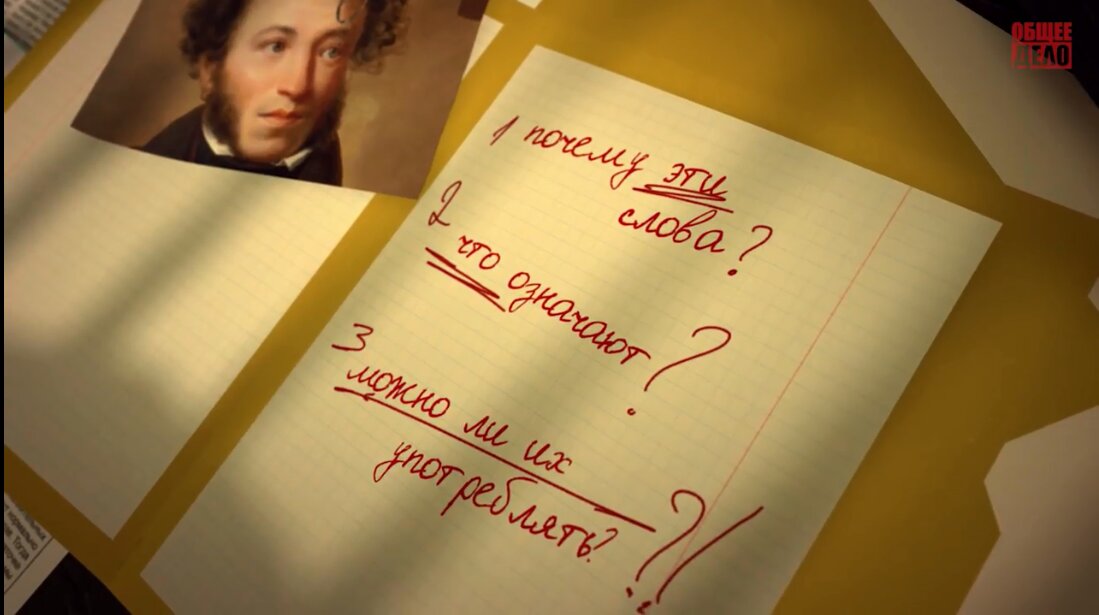 ОБЩЕЕ
ДЕЛО
1 почему эти
слова?
2 что означают?
3
можно ли их
употреблять??!